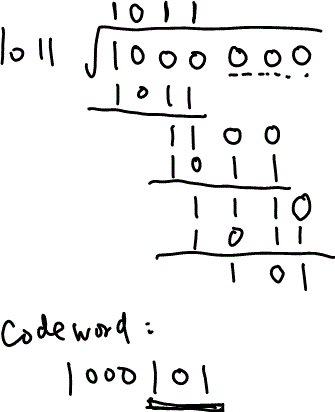 1011
1011 √1000000
1011
1100
1011
1110
1011
101
Codeword:
1000101